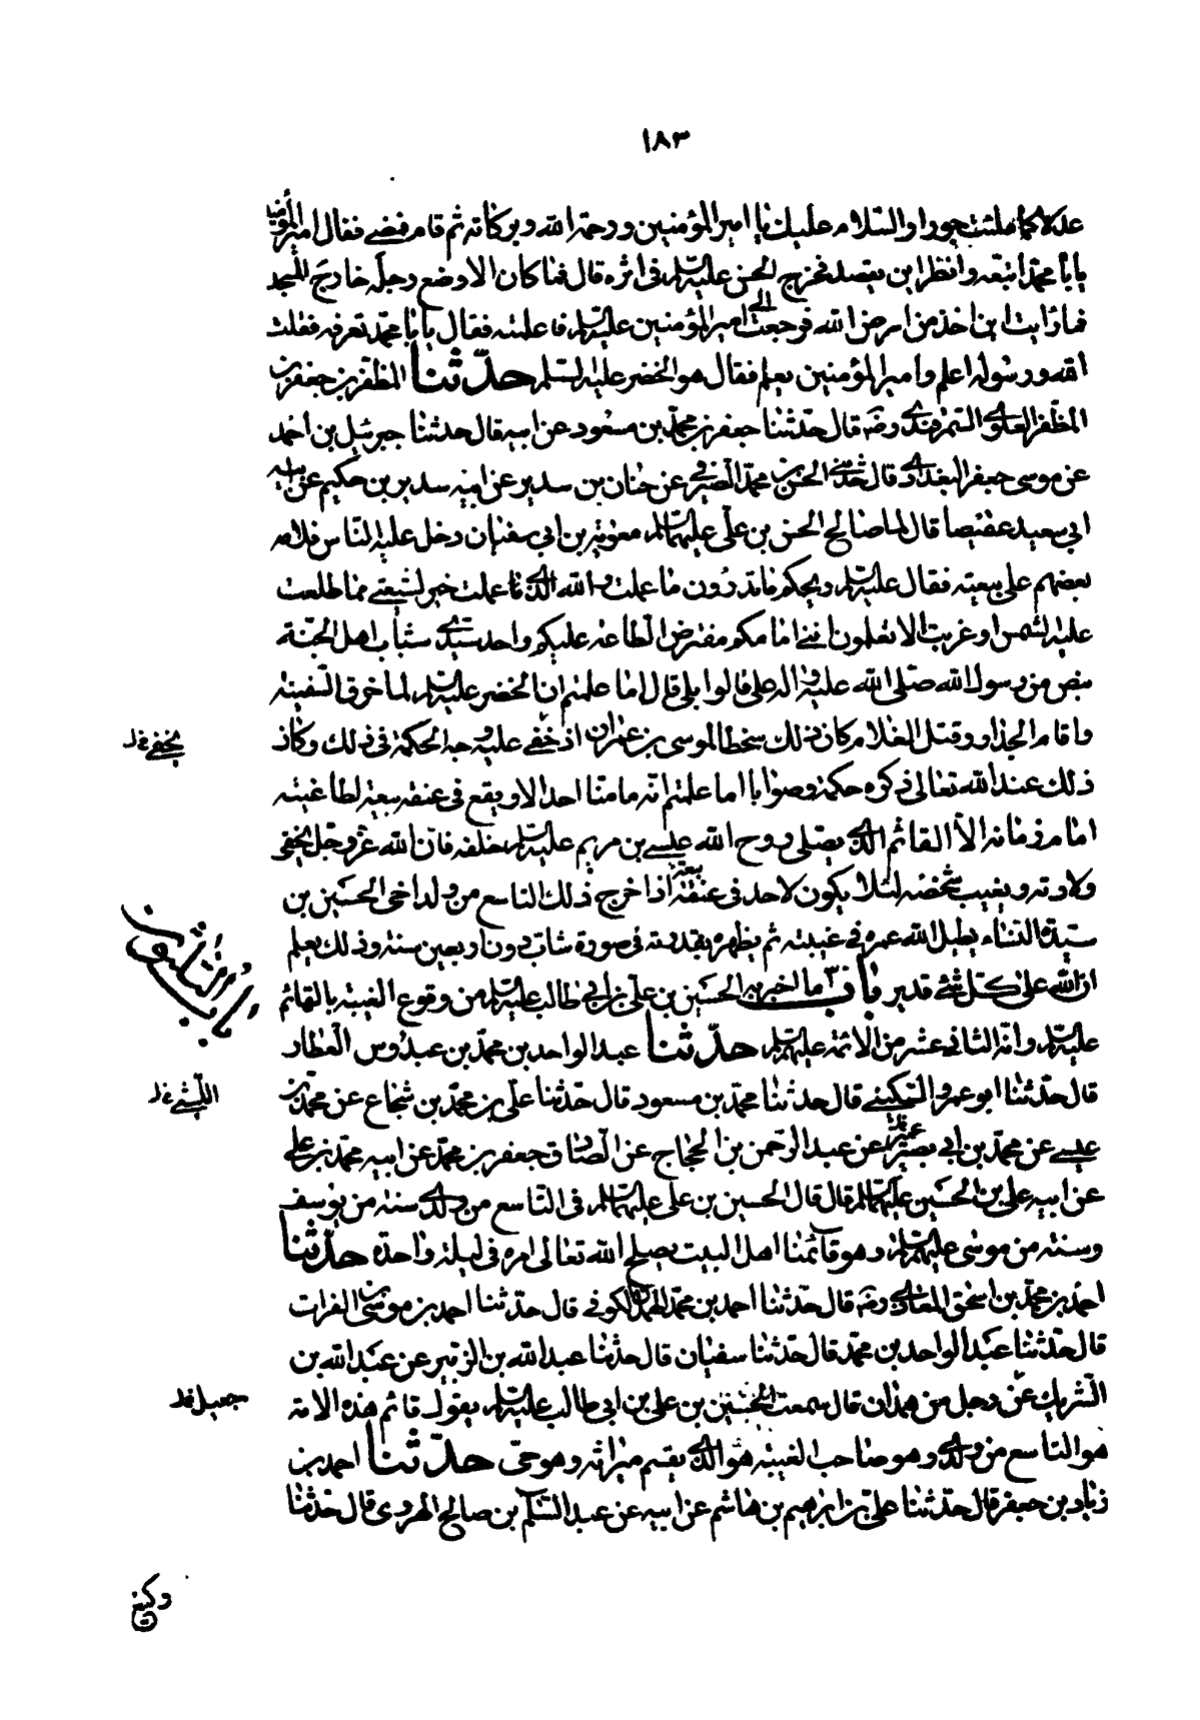 ١٨٣
عدلا كما ملئت جورا والسّلام عليك يا امير المؤمنين ورحمة الله وبركاته ثم قام فمضى فقال امير المؤمنين
يا با محمّد اتبعه وانظر اين يقصد فخرج الحسن عليه السّلم فى اثره قال فما كان الا وضع رجله خارج المسجد
فما رايت اين اخذ من ارض الله فرجعت الى امير المؤمنين عليه السّلم فاعلمته فقال يا با محمّد تعرفه فقلت
الله ورسوله اعلم وامير المؤمنين يعلم فقال هو الخضر عليه السّلم حدّثنا المظفر بن جعفر بن
المظفّر العلوى السّمرقندى رضه قال حدّثنا جعفر بن محمّد بن مسعود عن ابيه قال حدثنا جبرئيل بن احمد
عن موسى جعفر البغدادى قال حدّثنى الحسن بن محمّد الصّيرفى عن حنان بن سدير عن ابيه سدير بن حكيم عن ابيه
ابى سعيد عقيصا قال لما صالح الحسن بن علّى عليهما السّلم معوية بن ابى سفيان دخل عليه النّاس فلامه
بعضهم على بيعته فقال عليه السّلم ويحكم ما تدرون ما عملت والله الذى ما عملت خير لشيعتى مما طلعت
عليه الشّمس او غربت الا تعلمون اننى امامكم مفترض الطاعة عليكم واحد سيّدى شباب اهل الجنّة
بنص من رسول الله صلى الله عليه واله على قالوا بلى قال اما علمتم ان الخضر عليه السّلم لما خرق السّفينة
واقام الجدار وقتل الغلام كان ذلك سخطا لموسى بن عمران اذ خفى عليه وجه الحكمة فى ذلك وكان
يخفى خ ل
ذلك عند الله تعالى ذكره حكمة وصوابا اما علمتم انّه ما منّا احد الا ويقع فى عنقه بيعة لطاغية
امام زمانه الّا القائم الذى يصلى روح الله عيسى بن مريم عليه السّلم خلفه فانّ الله عزّ وجلّ يخفى
ولادته ويغيب شخصه لئلا يكون لاحد فى عنقه بيعة اذا خرج ذلك التاسع من ولد اخى الحسين بن
سيّدة النّساء يطيل الله عمره فى غيبته ثم يظهره بقدرته فى صورة شاب دون اربعين سنة وذلك ليعلم
انّ الله على كل شئ قدير باب ٣٠ ما اخبر به الحسين بن على بن ابى طالب عليه السّلم من وقوع الغيبة بالقائم
باب الثلثون
عليه السّلم وانّه الثانى عشر من الائمّة عليهم السّلم حدّثنا عبد الواحد بن محمّد بن عبدوس العطار
قال حدّثنا ابو عمرو الكشى قال حدثنا محمّد بن مسعود قال حدّثنا علّى بن محمّد بن شجاع عن محمّد بن
عيسى عن محمّد بن ابى عمير عن عبد الرّحمن بن الحجاج عن الصّادق جعفر بن محمّد عن ابيه محمّد بن على
عن ابيه على بن الحسين عليهم السّلم قال قال الحسين بن على عليهما السّلم فى التّاسع من ولدى سنة من يوسف
وسنة من موسى عليهما السّلم وهو قائمنا اهل البيت يصلح الله تعالى امره فى ليلة واحدة حدّثنا
احمد بن محمّد بن اسحق المعاذى رضه قال حدّثنا احمد بن محمّد الهمدانى الكوفى قال حدّثنا احمد بن موسى بن الفرات
قال حدّثنا عبد الواحد بن محمّد قال حدّثنا سفيان قال حدّثنا عبد الله بن الزبير عن عبد الله بن
الشّريك عن رجل من همدان قال سمعت الحسين بن على بن ابى طالب عليه السّلم يقول قائم هذه الامّة
جعيل خ ل
هو التاسع من ولدى وهو صاحب الغيبة هو الذى يقسم ميراثه وهو حىّ حدّثنا احمد بن
زياد بن جعفر قال حدّثنا علىّ بن ابراهيم بن هاشم عن ابيه عن عبد السّلام بن صالح الهروى قال حدّثنا
وكيع